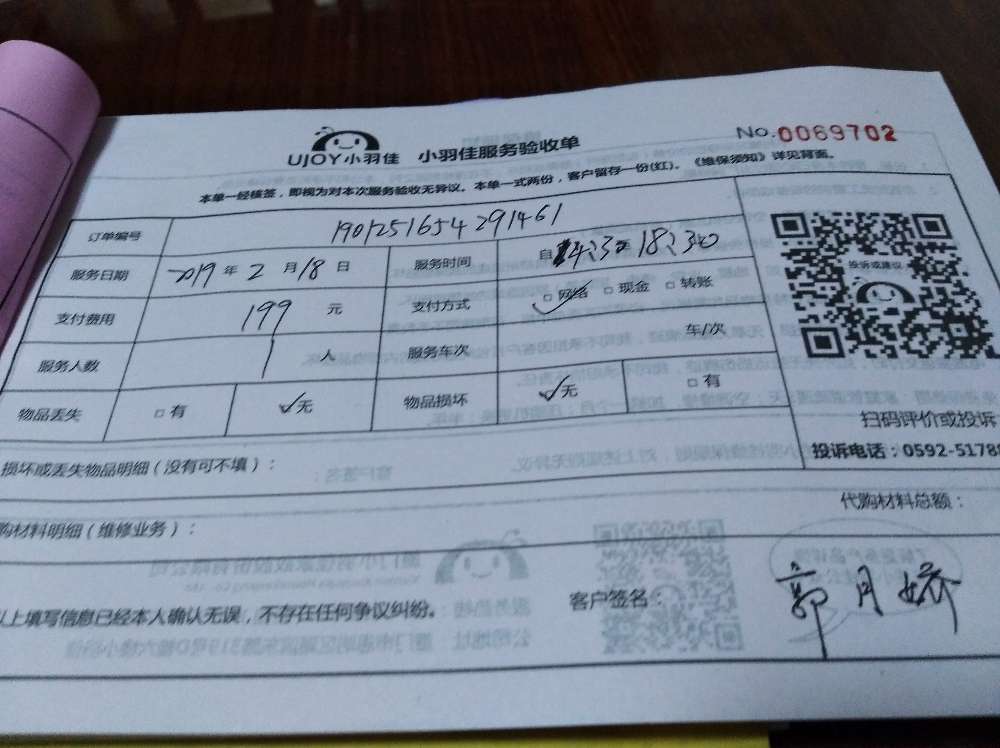 UJOY小羽佳 小羽佳服务验收单 No.0069702
本单一经核签，即视为对本次服务验收无异议。本单一式两份，客户留存一份(红)。《维保须知》详见背面。
订单编号 1901251654291461
服务日期 2019 年 2 月 18 日 服务时间 自
支付费用 199 元 支付方式 □网络 □现金 □转账
服务人数 1 人 服务车次 车/次
物品丢失 □有 ☑无 物品损坏 ☑无 □有
投诉或建议
扫码评价或投诉
投诉电话：0592-5178
损坏或丢失物品明细（没有可不填）：
购材料明细（维修业务）： 代购材料总额：
以上填写信息已经本人确认无误，不存在任何争议纠纷。 客户签名： 郭月娇